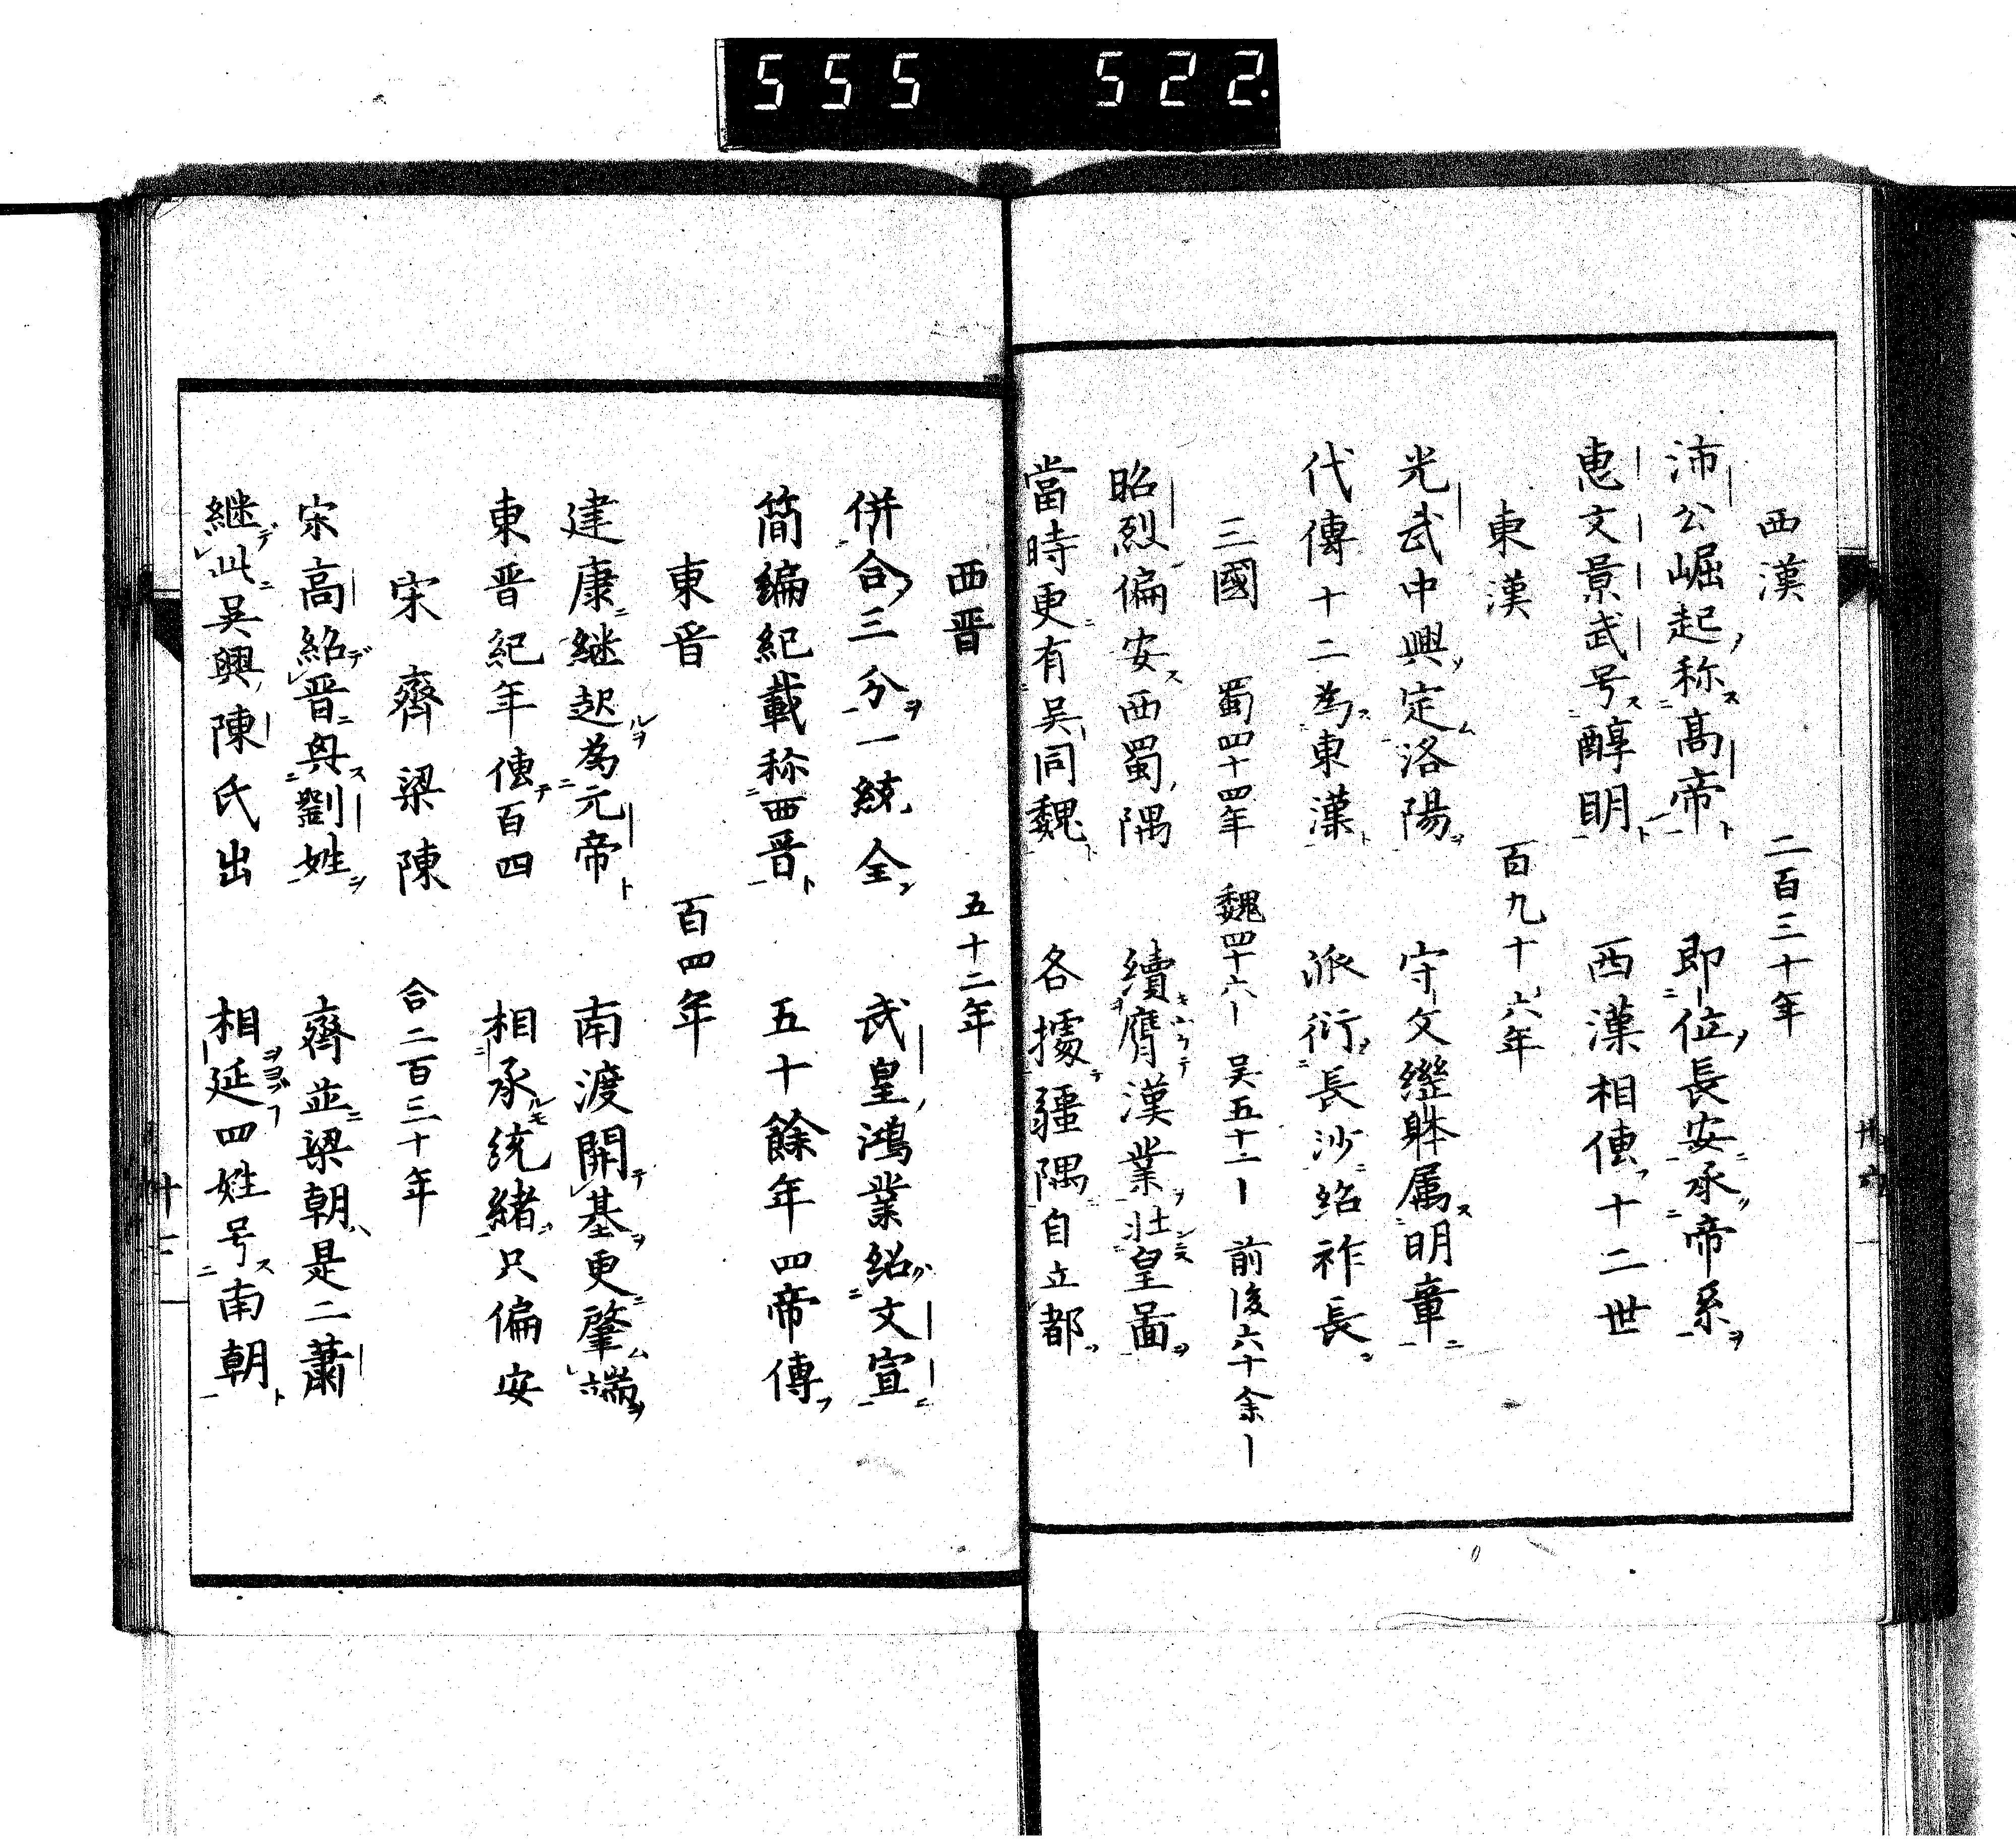 555 522.
西漢 二百三十年
沛公崛起称高帝 即位長安承帝系
恵文景武号醇明 西漢相傳十二世
東漢 百九十六年
光武中興定洛陽 守文繼躰属明章
代傳十二為東漢 派衍長沙紹祚長
三國 蜀四十四年 魏四十六ー 吴五十二ー 前後六十余ー
昭烈偏安西蜀隅 續膺漢業壮皇啚
當時更有吴同魏 各據疆隅自立都
西晋 五十二年
併合三分一統全 武皇鴻業紹文宣
簡編紀載称西晋 五十餘年四帝傳
東晋 百四年
建康継起為元帝 南渡開基更肇端
東晋紀年傳百四 相承統緒只偏安
宋齊梁陳 合二百三十年
宋高紹晋與劉姓 齊並梁朝是二蕭
継此吴興陳氏出 相延四姓号南朝